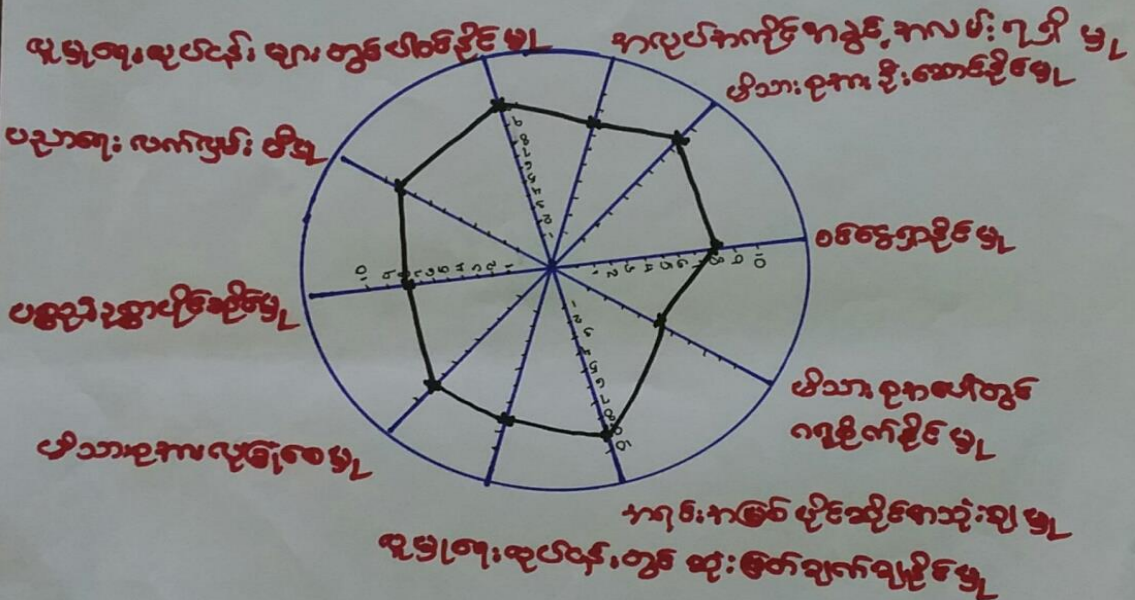 လူမှုရေးလုပ်ငန်း များ တွင် ပါဝင်နိုင် မှု
အလုပ်အကိုင် အခွင့် အလမ်း ရရှိ မှု
မိသားစုအား ဦးဆောင်နိုင်မှု
ပညာရေး လက်လှမ်း မီမှု
ဝင်ငွေရှာနိုင်မှု
ပစ္စည်းဥစ္စာပိုင်ဆိုင်မှု
မိသားစုအပေါ်တွင်
ဂရုစိုက်နိုင် မှု
မိသားစုအားလုံခြုံစေမှု
အရင်းအမြစ် ပိုင်ဆိုင်အသုံးချ မှု
လူမှုရေးလုပ်ငန်းတွင် ဆုံးဖြတ်ချက်ချနိုင်မှု
1 2 3 4 5 6 7 8 9 10